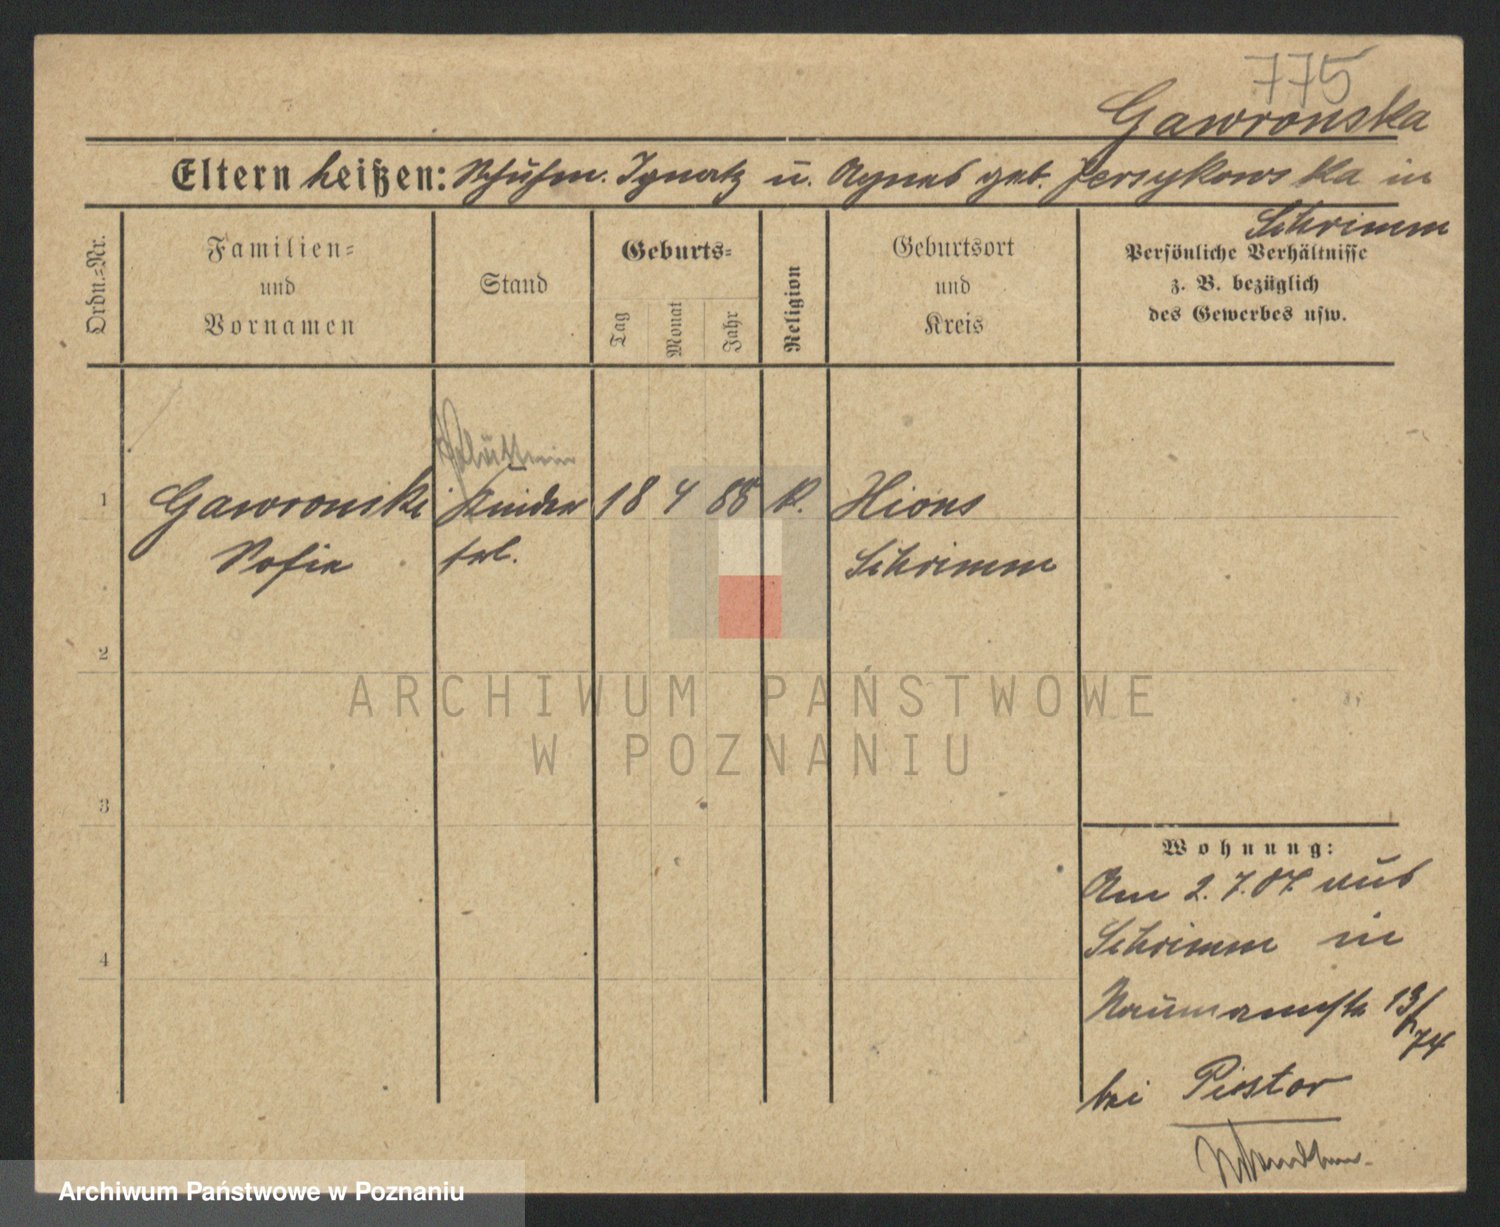 775
Gawronska
Eltern heißen: Schuhm. Ignatz u. Agnes geb. Jersykowska in
Schrimm
Ordn.=Nr.
Familien=
und
Vornamen
Stand
Geburts=
Tag
Monat
Jahr
Religion
Geburtsort
und
Kreis
Persönliche Verhältnisse
z. B. bezüglich
des Gewerbes usw.
1 Gawronski Kinder 18 4 88 k. Xions
Sofie frl. Schrimm
2
ARCHIWUM PAŃSTWOWE
W POZNANIU
3
4
Wohnung:
Am 2.7.07. aus
Schrimm in
Naumannstr 13/
74
bei Piostor
Archiwum Państwowe w Poznaniu